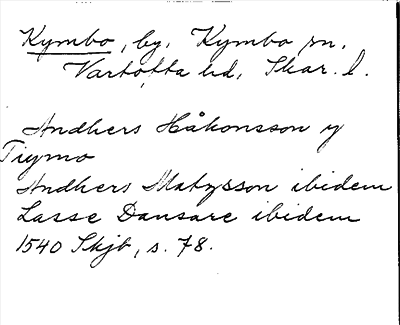 Kymbo, by, Kymbo sn,
Vartofta hd, Skar. l.
Andhers Håkonsson y
Tiymo
Andhers Matzsson ibidem
Lasse Dansare ibidem
1540 Skjb, s. 78.